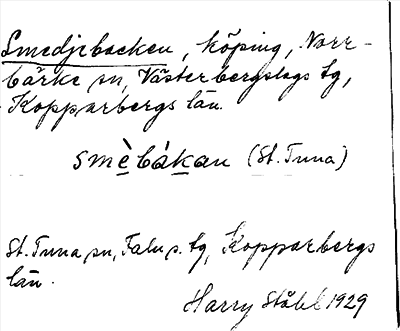 Smedjebacken, köping, Norr-
bärke sn, Västerbergslags tg,
Kopparbergs län.
smè̱bák̲an (St. Tuna)
St. Tuna sn, Falu s. tg, Kopparbergs
län.
Harry Ståhl 1929